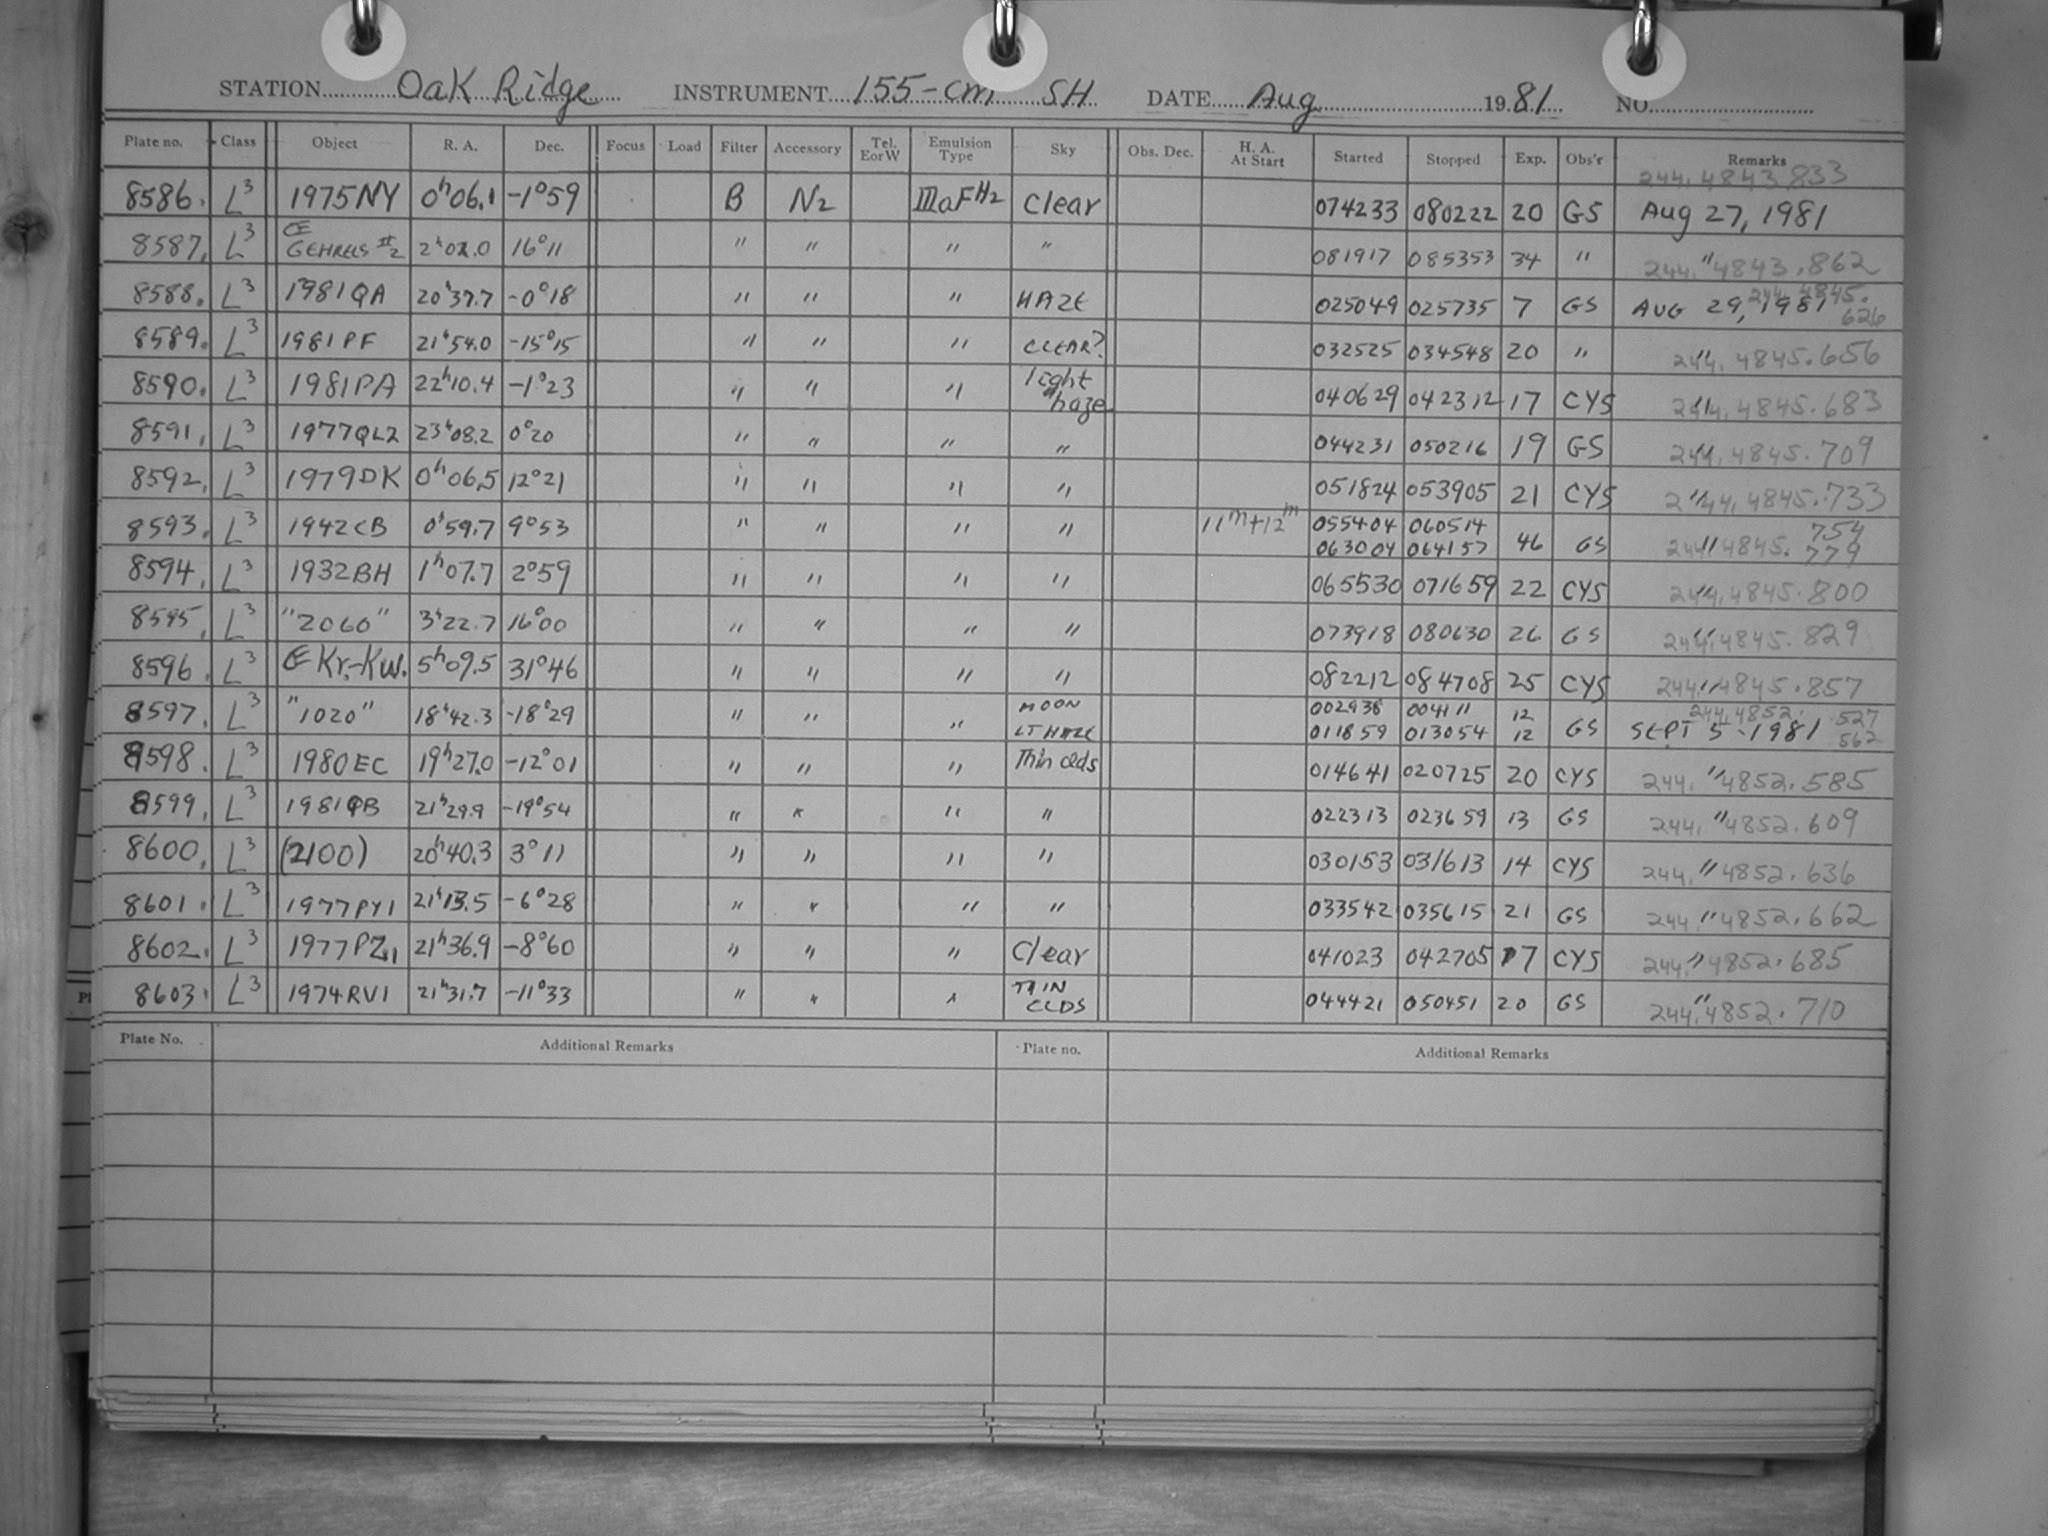 STATION Oak Ridge INSTRUMENT 155-cm SH DATE Aug 1981 NO.
Plate no. Class Object R. A. Dec. Focus Load Filter Accessory Tel. E or W Emulsion Type Sky Obs. Dec. H. A. At Start Started Stopped Exp. Obs'r Remarks
244.4843.833
8586. L3 1975NY 0h06.1 -1°59 B N2 IIIaFH2 Clear 074233 080222 20 GS Aug 27, 1981
8587. L3 GEHRELS #2 2h02.0 16°11 " " " " 081917 085353 34 " 244."4843.862
8588. L3 1981QA 20h37.7 -0°18 " " " HAZE 025049 025735 7 GS AUG 29, 1981 244.4845.626
8589. L3 1981PF 21h54.0 -15°15 " " " CLEAR? 032525 034548 20 " 244." 4845.656
8590. L3 1981PA 22h10.4 -1°23 " " " light haze 040629 042312 17 CYS 244."4845.683
8591. L3 1977QL2 23h08.2 0°20 " " " " 044231 050216 19 GS 244."4845.709
8592. L3 1979DK 0h06.5 12°21 " " " " 051824 053905 21 CYS 244."4845.733
8593. L3 1942CB 0h59.7 9°53 " " " " 11m+12m 055404 060514 063004 064157 46 GS 244."4845. 754 779
8594. L3 1932BH 1h07.7 2°59 " " " " 065530 071659 22 CYS 244."4845.800
8595. L3 "2060" 3h22.7 16°00 " " " " 073918 080630 26 GS 244."4845.829
8596. L3 Kr.-Kw. 5h09.5 31°46 " " " " 082212 084708 25 CYS 244."4845.857
8597. L3 "1020" 18h42.3 -18°29 " " " MOON LT HAZE 002938 004111 12 011859 013054 12 GS SEPT 5-1981 244.4852. 527 562
8598. L3 1980EC 19h27.0 -12°01 " " " Thin clds 014641 020725 20 CYS 244."4852.585
8599. L3 1981QB 21h29.9 -19°54 " " " " 022313 023659 13 GS 244."4852.609
8600. L3 (2100) 20h40.3 3°11 " " " " 030153 031613 14 CYS 244."4852.636
8601. L3 1977PY1 21h13.5 -6°28 " " " " 033542 035615 21 GS 244."4852.662
8602. L3 1977PZ1 21h36.9 -8°60 " " " Clear 041023 042705 17 CYS 244."4852.685
8603. L3 1974RV1 21h31.7 -11°33 " " " THIN CLDS 044421 050451 20 GS 244."4852.710
Plate No. Additional Remarks Plate no. Additional Remarks